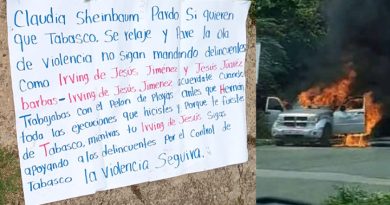 Claudia Sheinbaum Pardo Si quieren
que Tabasco. Se relaje y Pare la Ola
de violencia no sigan mandando delincuentes
Como Irving de Jesús, Jiménez y Jesús Juárez
barbas - Irving de Jesús, Jiménez acuerdate Cuando
Trabajabas con el Pelon de Playas antes que Hernan,
todo las ejecuciones que hicistes y Porque te fueste
de Tabasco, mientras tu Irving de Jesús, Sigas
apoyando a los delincuentes por el Control de
Tabasco la violencia Seguira.